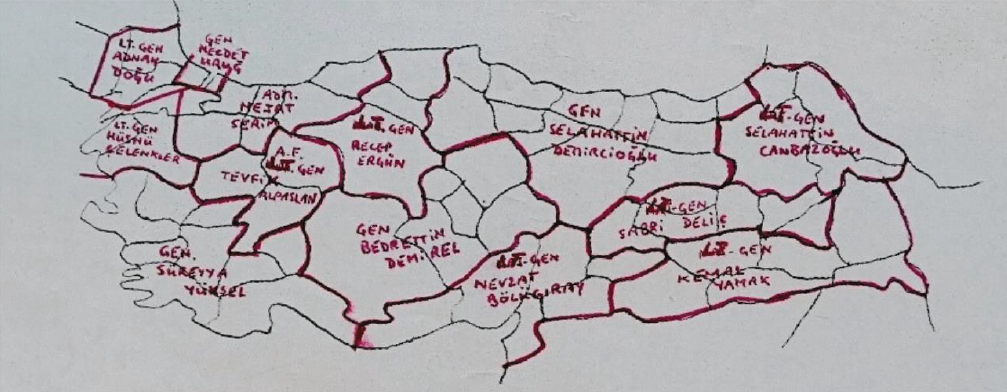 LT. GEN
ADNAN
DOĞU
GEN
NECDET
URUĞ
ADM.
NEJAT
SERİM
LT. GEN
HÜSNÜ
ÇELENKLER
A.F.
LT. GEN
TEVFİK
ALPASLAN
LT. GEN
RECEP
ERGUN
GEN
SELAHATTİN
DEMİRCİOĞLU
LT. GEN
SELAHATTİN
CANBAZOĞLU
GEN.
SÜREYYA
YÜKSEL
GEN
BEDRETTİN
DEMİREL
LT. GEN
NEVZAT
BÖLÜGİRAY
GEN
SABRİ DELİÇ
LT. GEN
KEMAL
YAMAK